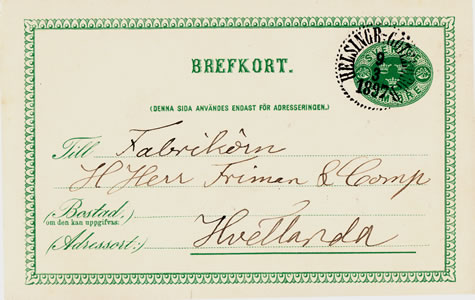 BREFKORT.
HELSINGB.-GÖTEBORG
9
3
1897
SVERIGE
FEM ÖRE
(DENNA SIDA ANVÄNDES ENDAST FÖR ADRESSERINGEN.)
Till Fabrikörn
H Herr Friman & Comp
(Bostad,
om den kan uppgifvas:)
(Adressort:) Hvetlanda